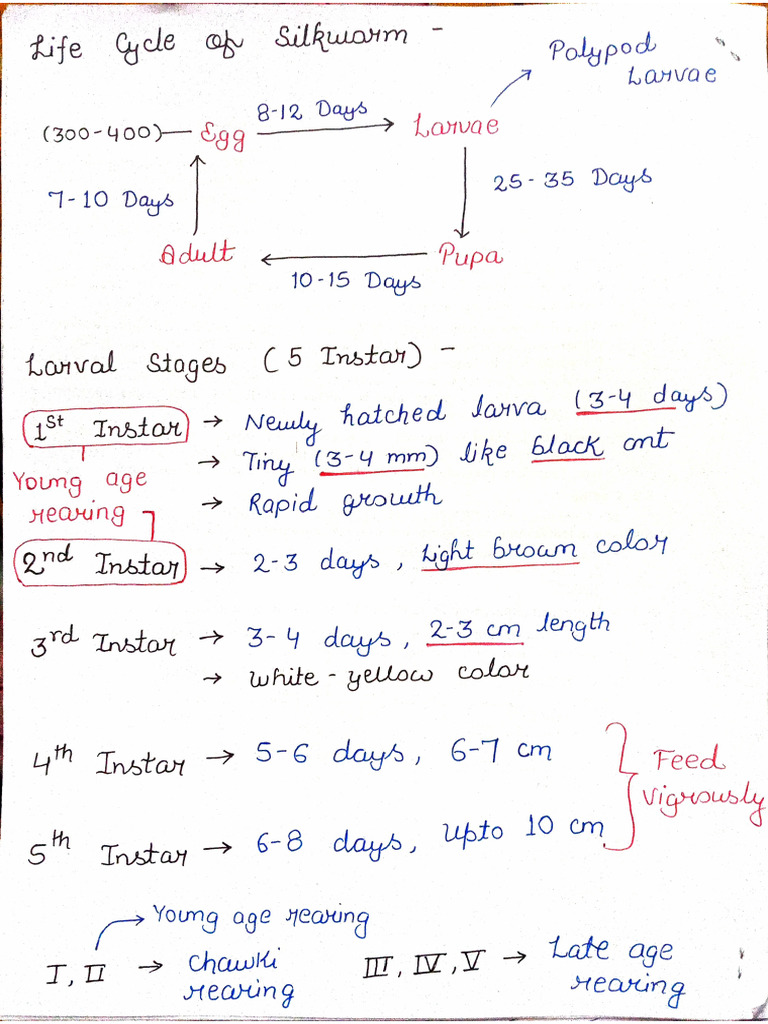 Life Cycle of Silkwarm -
Polypod
Larvae
(300-400) — Egg
8-12 Days
Larvae
7-10 Days
25-35 Days
Adult
Pupa
10-15 Days
Larval Stages (5 Instar) -
1st Instar → Newly hatched larva (3-4 days)
→ Tiny (3-4 mm) like black ant
Young age
rearing
→ Rapid growth
2nd Instar → 2-3 days, Light brown color
3rd Instar → 3-4 days, 2-3 cm length
→ White-yellow color
4th Instar → 5-6 days, 6-7 cm
Feed
Vigrously
5th Instar → 6-8 days, Upto 10 cm
Young age rearing
I, II → Chawki
rearing
III, IV, V → Late age
rearing